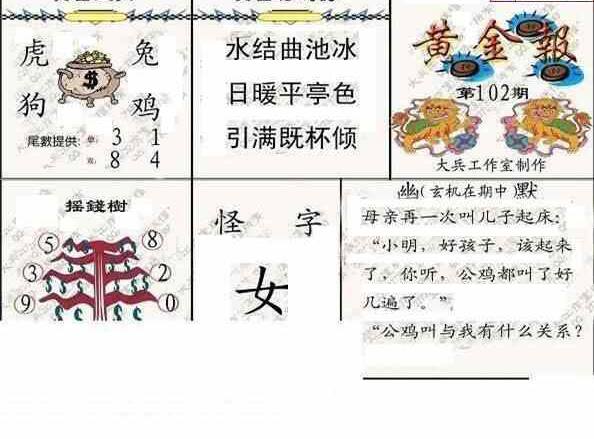 虎 兔
狗 鸡
$
尾數提供: 单: 3 1
双: 8 4
水结曲池冰
日暖平亭色
引满既杯倾
黄金報
第102期
大兵工作室制作
摇錢樹
5 8
3 2
9 0
怪 字
女
幽(玄机在期中)默
母亲再一次叫儿子起床:
“小明，好孩子，该起来
了，你听，公鸡都叫了好
几遍了。”
“公鸡叫与我有什么关系?